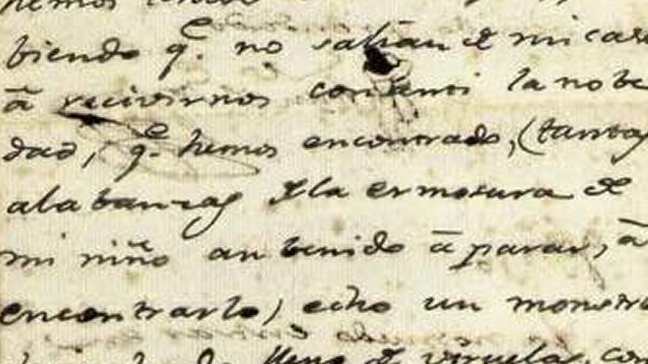 hemos
biendo q.e no salian de mi casa
à recivirnos con tanti la nobe
dad, q.e hemos encontrado, (tantas
alabanzas de la ermosura de
mi niño an benido à parar, à
encontrarlo) echo un monstro
lleno de viruelas con